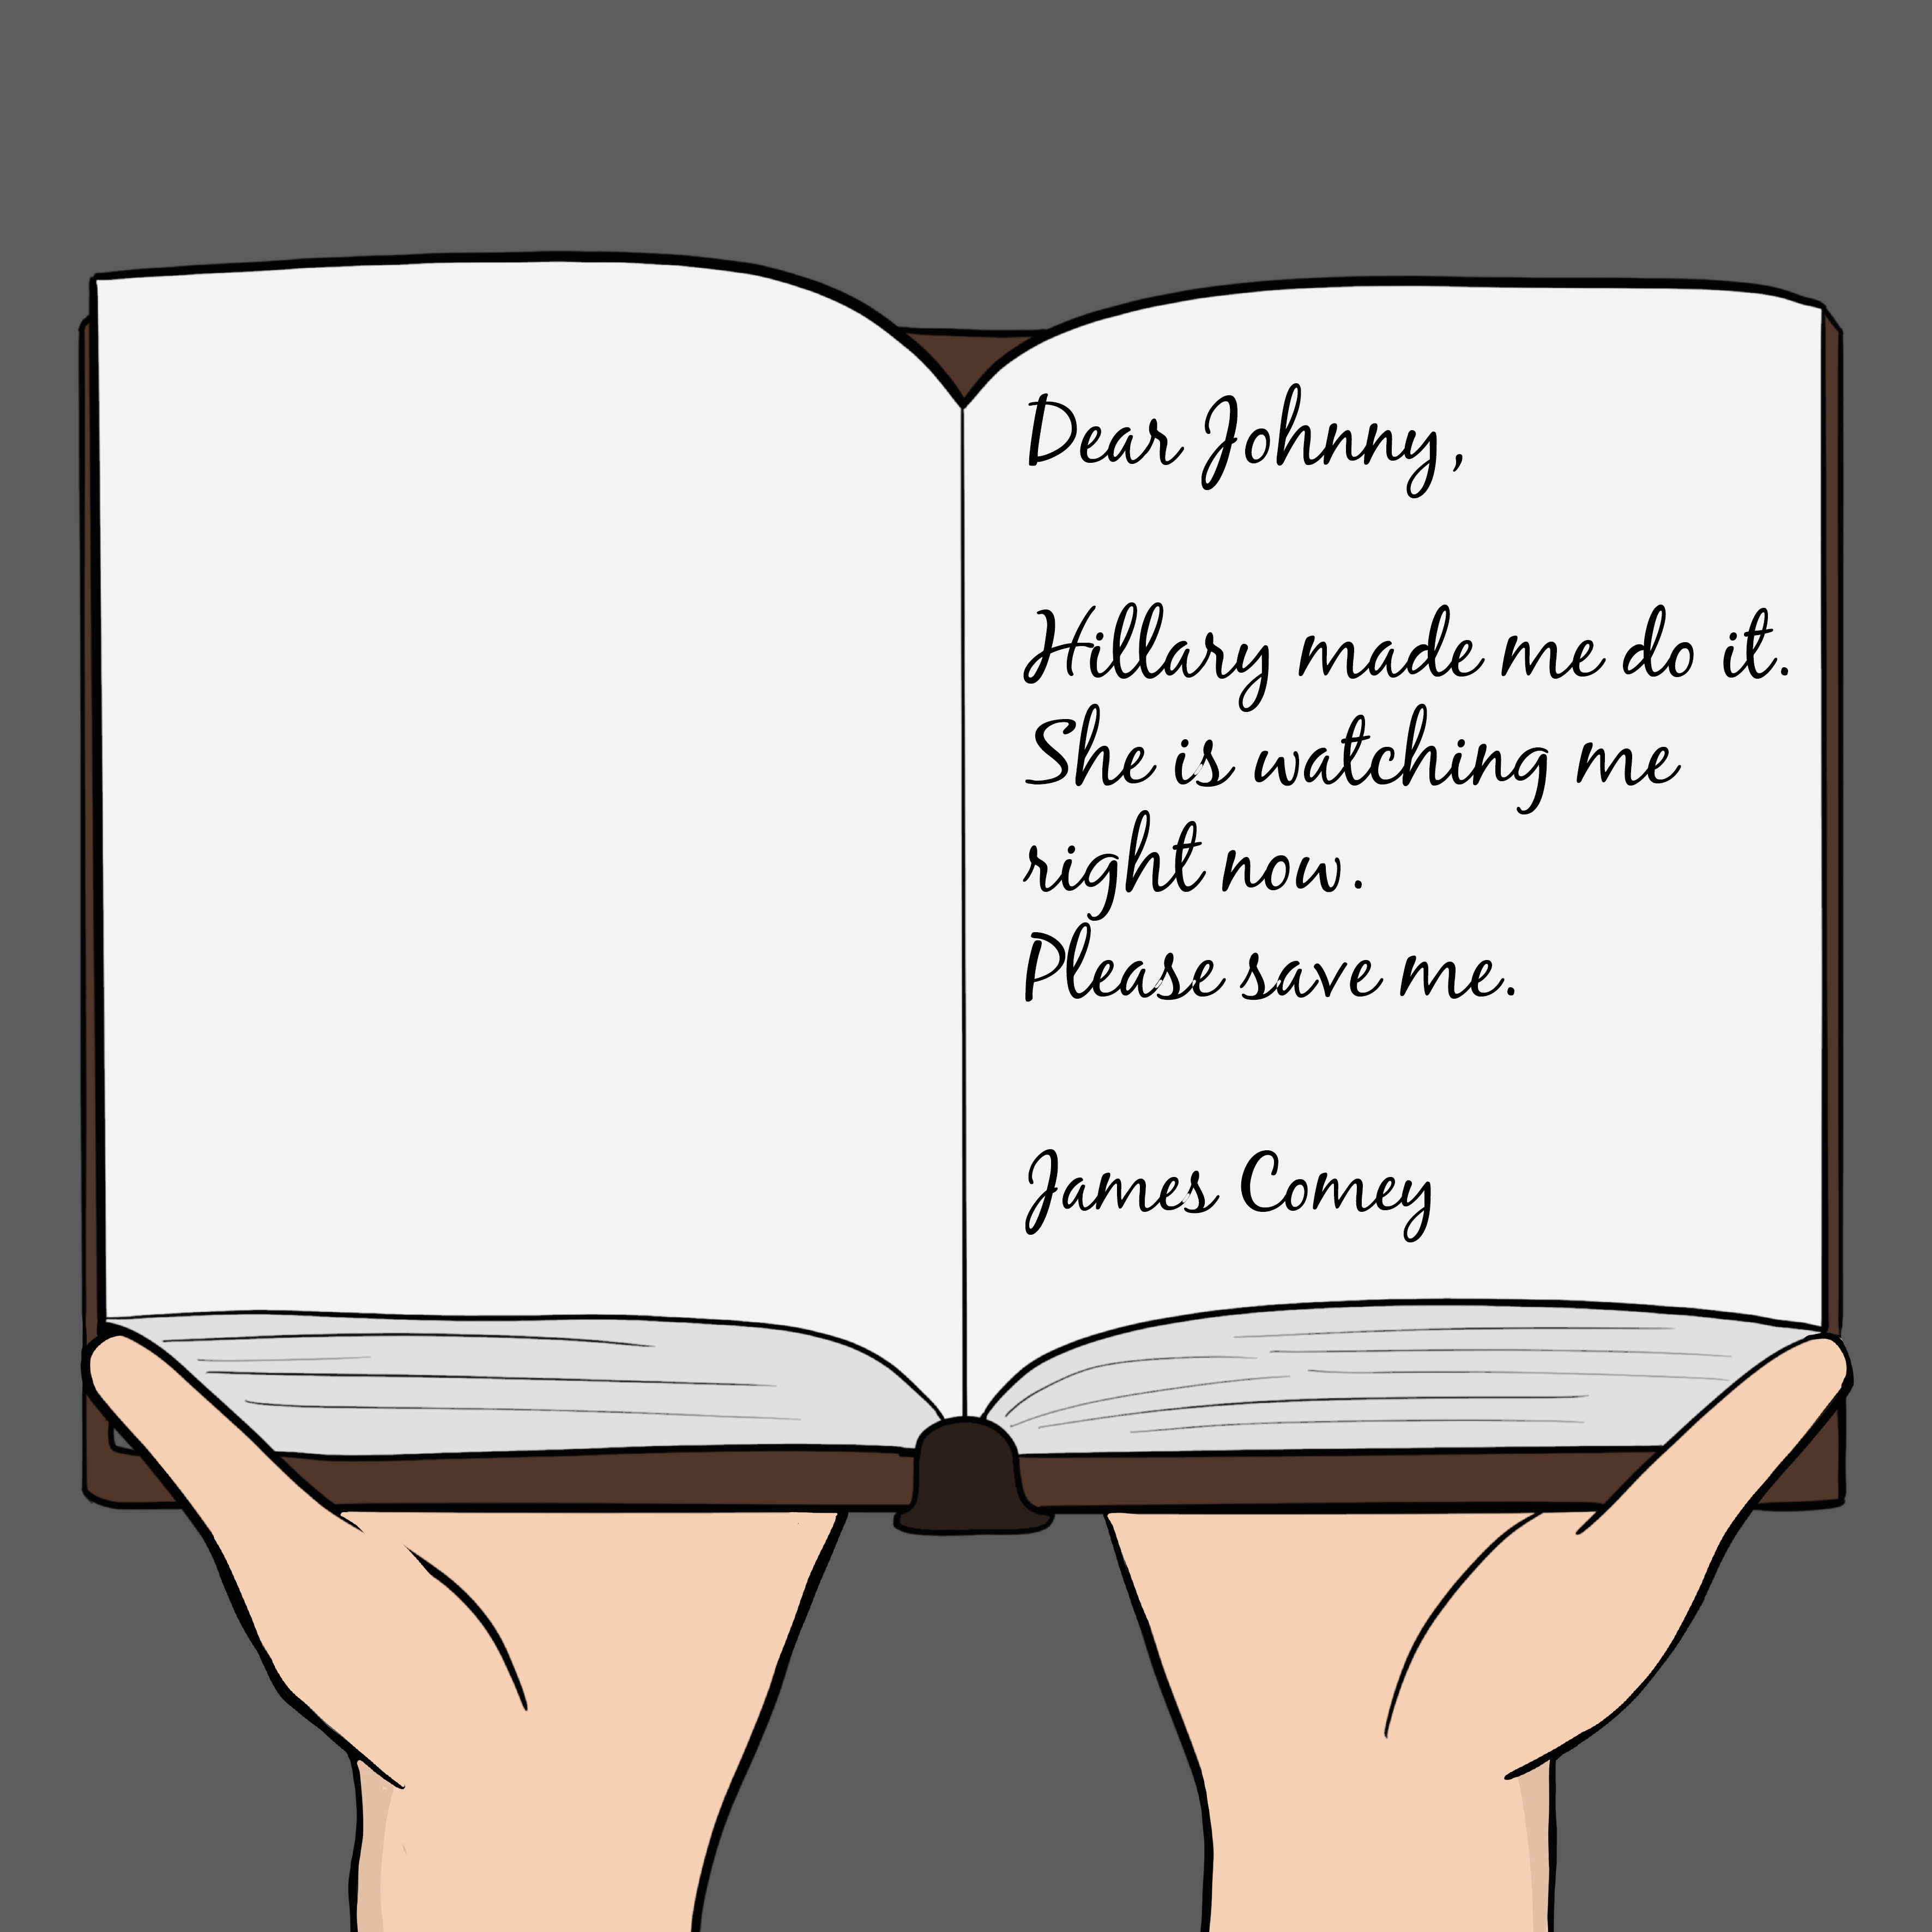 Dear Johnny,
Hillary made me do it.
She is watching me
right now.
Please save me.
James Comey